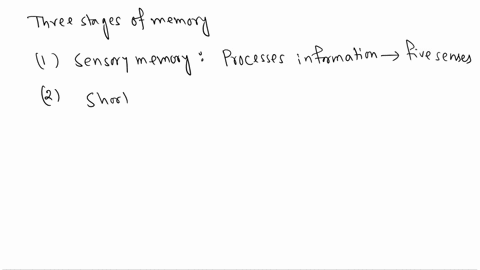 Three stages of memory
(1) Sensory memory : Processes information → five senses
(2) Shor